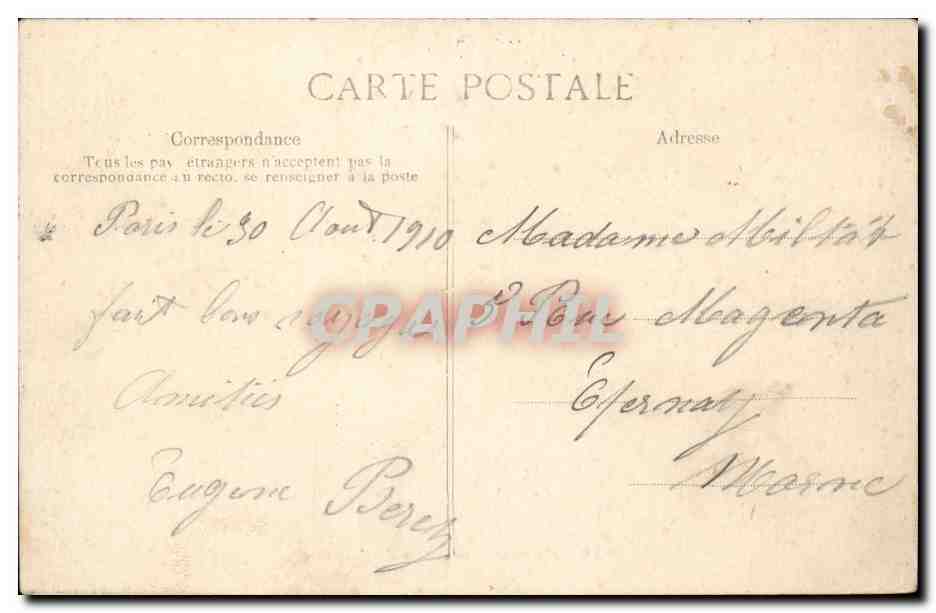 CARTE POSTALE
Correspondance
Tous les pay étrangers n'acceptent pas la
correspondance au recto, se renseigner à la poste
Paris le 30 Aout 1910
fait bons voyage
Amitiés
Eugene
Adresse
Madame
5 Rue Magenta
Epernay
Marne
CPAPHIL